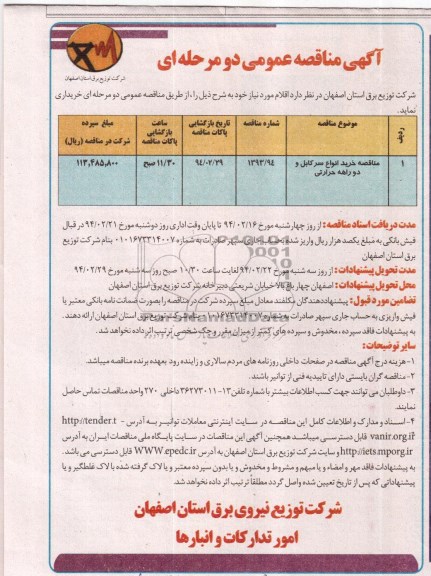 آگهی مناقصه عمومی دو مرحله ای
شرکت توزیع برق استان اصفهان
شرکت توزیع برق استان اصفهان در نظر دارد اقلام مورد نیاز خود به شرح ذیل را، از طریق مناقصه عمومی دو مرحله ای خریداری
نماید.
ردیف
موضوع مناقصه
شماره مناقصه
تاریخ بازگشایی پاکات مناقصه
ساعت بازگشایی پاکات مناقصه
مبلغ سپرده شرکت در مناقصه (ریال)
۱
مناقصه خرید انواع سرکابل و دو راهه حرارتی
۱۳۹۳/۹۴
۹٤/۰۲/۲۹
۱۱/۳۰ صبح
۱۱۳,۴۸۵,۸۰۰
مدت دریافت اسناد مناقصه: از روز چهارشنبه مورخ ۹۴/۰۲/۱۶ تا پایان وقت اداری روز دوشنبه مورخ ۹۴/۰۲/۲۱ در قبال
فیش بانکی به مبلغ یکصد هزار ریال واریز شده بحساب جاری سپهر صادرات به شماره ۰۱۰۱۶۷۳۳۱۴۰۰۷ بنام شرکت توزیع
برق استان اصفهان
مدت تحویل پیشنهادات: از روز سه شنبه مورخ ۹۴/۰۲/۲۲ لغایت ساعت ۱۰/۳۰ صبح روز سه شنبه مورخ ۹۴/۰۲/۲۹
محل تحویل پیشنهادات: اصفهان چهارباغ بالا خیابان شریعتی دبیرخانه شرکت توزیع برق استان اصفهان
تضامین مورد قبول: پیشنهاددهندگان مکلفند معادل مبلغ سپرده شرکت در مناقصه را بصورت ضمانت نامه بانکی معتبر یا
فیش واریزی به حساب جاری سپهر صادرات به شماره ۰۱۰۱۶۷۳۳۱۴۰۰۷ بنام شرکت توزیع برق استان اصفهان ارائه دهند.
به پیشنهادات فاقد سپرده، مخدوش و سپرده های کمتر از میزان مقرر و چک شخصی ترتیب اثر داده نخواهد شد.
سایر توضیحات:
۱- هزینه درج آگهی مناقصه در صفحات داخلی روزنامه های مردم سالاری و زاینده رود بعهده برنده مناقصه میباشد.
۲- مناقصه گران بایستی دارای تاییدیه فنی از توانیر باشند.
۳- داوطلبان می توانند جهت کسب اطلاعات بیشتر با شماره تلفن ۱۳-۳۶۲۷۳۰۱۱ داخلی ۲۷۰ واحد مناقصات تماس حاصل
نمایند.
۴- اسناد و مدارک و اطلاعات کامل این مناقصه در سایت اینترنتی معاملات توانیر به آدرس - http://tender.t
vanir.org.ir قابل دسترسی میباشد همچنین آگهی این مناقصات در سایت پایگاه ملی مناقصات ایران به آدرس
http://iets.mporg.ir و سایت شرکت توزیع برق استان اصفهان به آدرس WWW.epedc.ir قابل دسترسی می باشد.
به پیشنهادات فاقد مهر و امضاء و یا مبهم و مشروط و مخدوش و یا بدون سپرده معتبر و یا لاک گرفته شده با لاک غلطگیر و یا
پیشنهاداتی که پس از تاریخ تعیین شده واصل گردد مطلقاً ترتیب اثر داده نخواهد شد.
شرکت توزیع نیروی برق استان اصفهان
امور تدارکات و انبارها